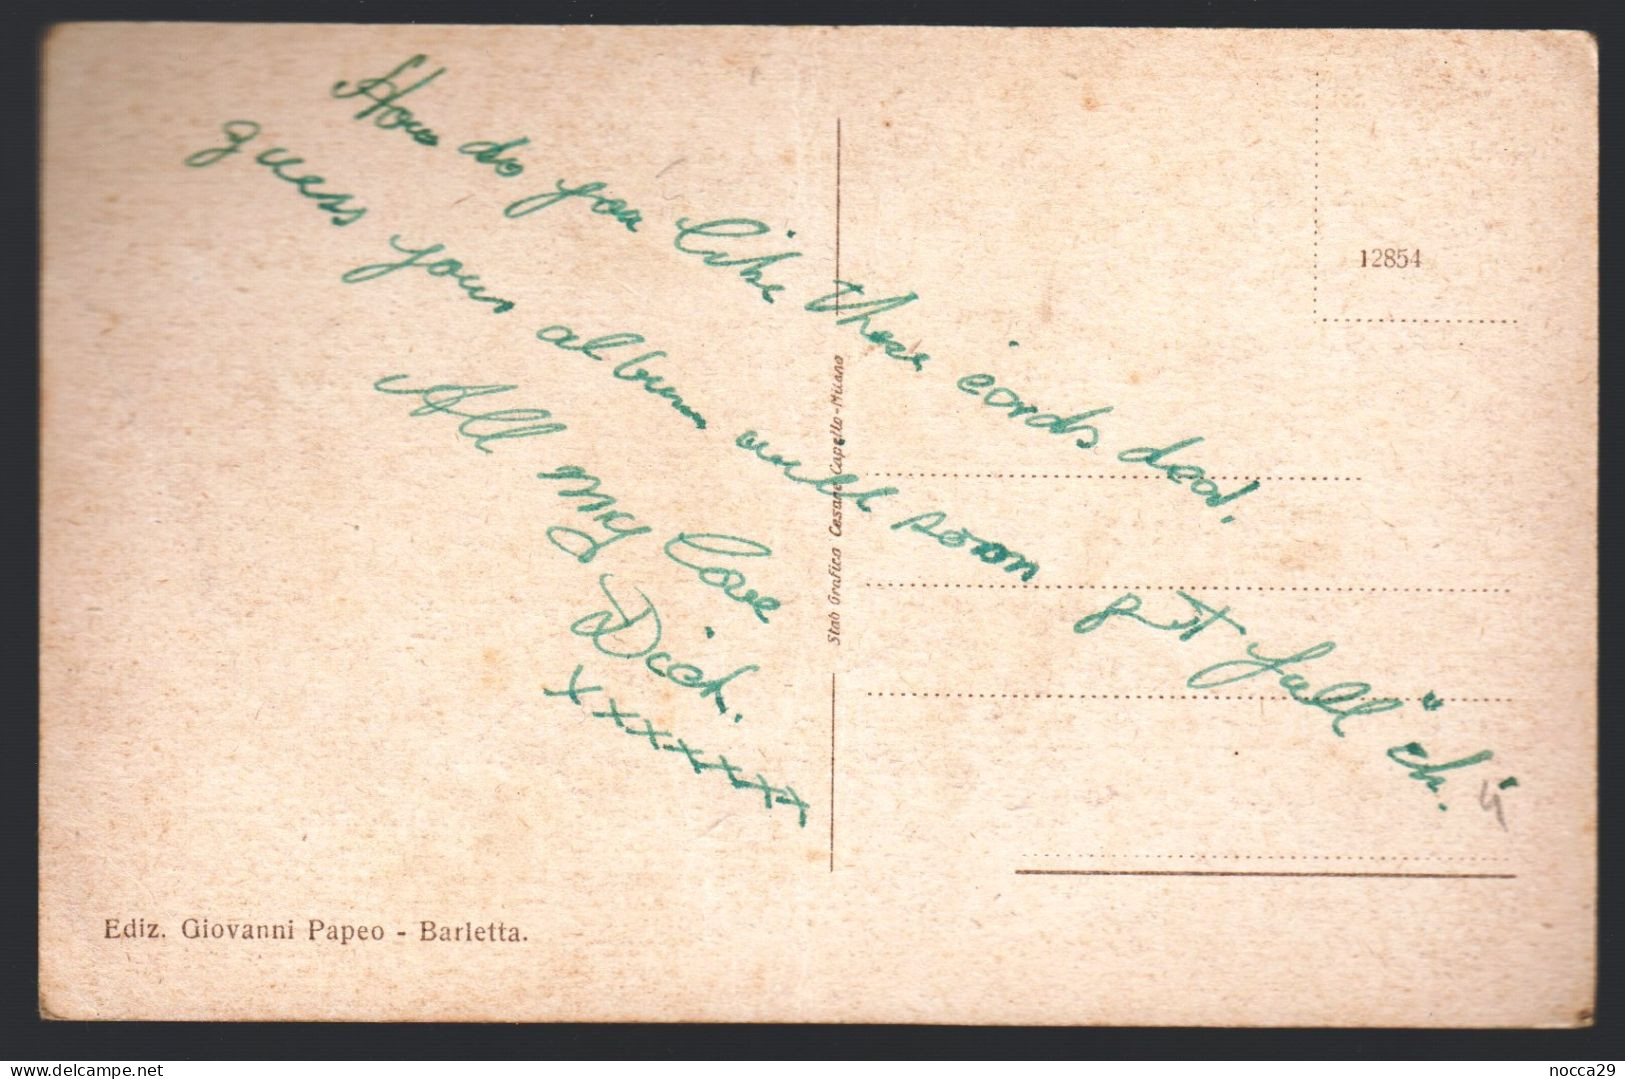 How do you like these cords dead,
guess your album will soon get full "eh."
All my love
Dick.
xxxxxxx
12854
Stab Grafico Cesare Capello-Milano
Ediz. Giovanni Papeo - Barletta.
delcampe.net
nocca29